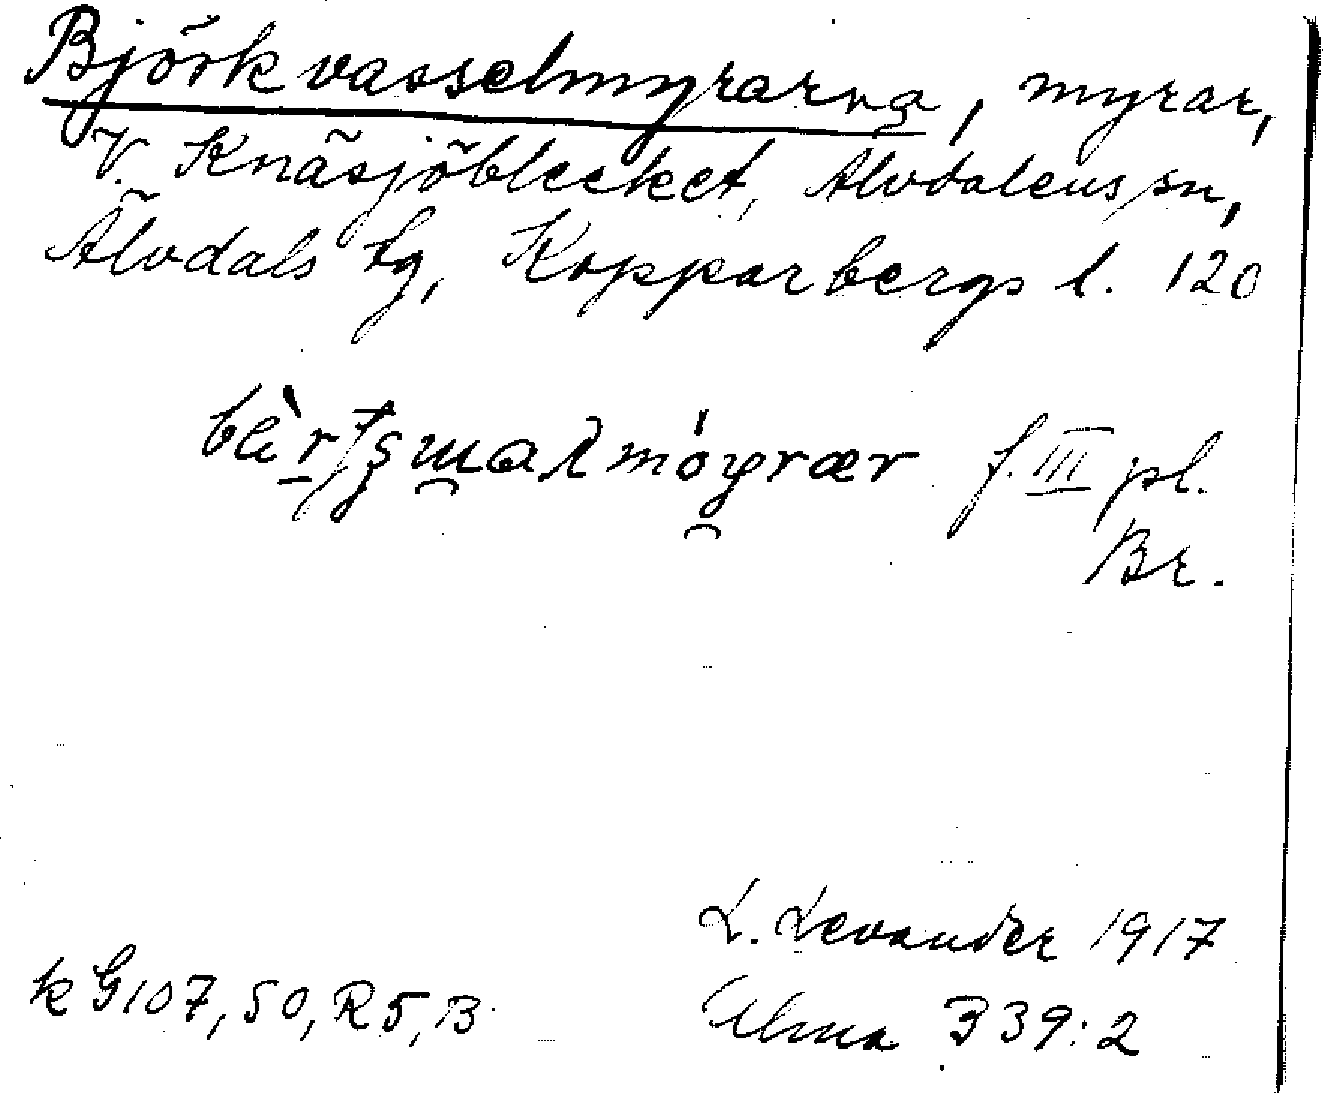 Björkvasselmyrarna, myrar,
V. Knäsjöblecket, Älvdalens sn,
Älvdals tg, Kopparbergs l. 120
f. III pl.
Br.
L. Levander 1917
k G107, 50, R5, B
Ulma 339:2